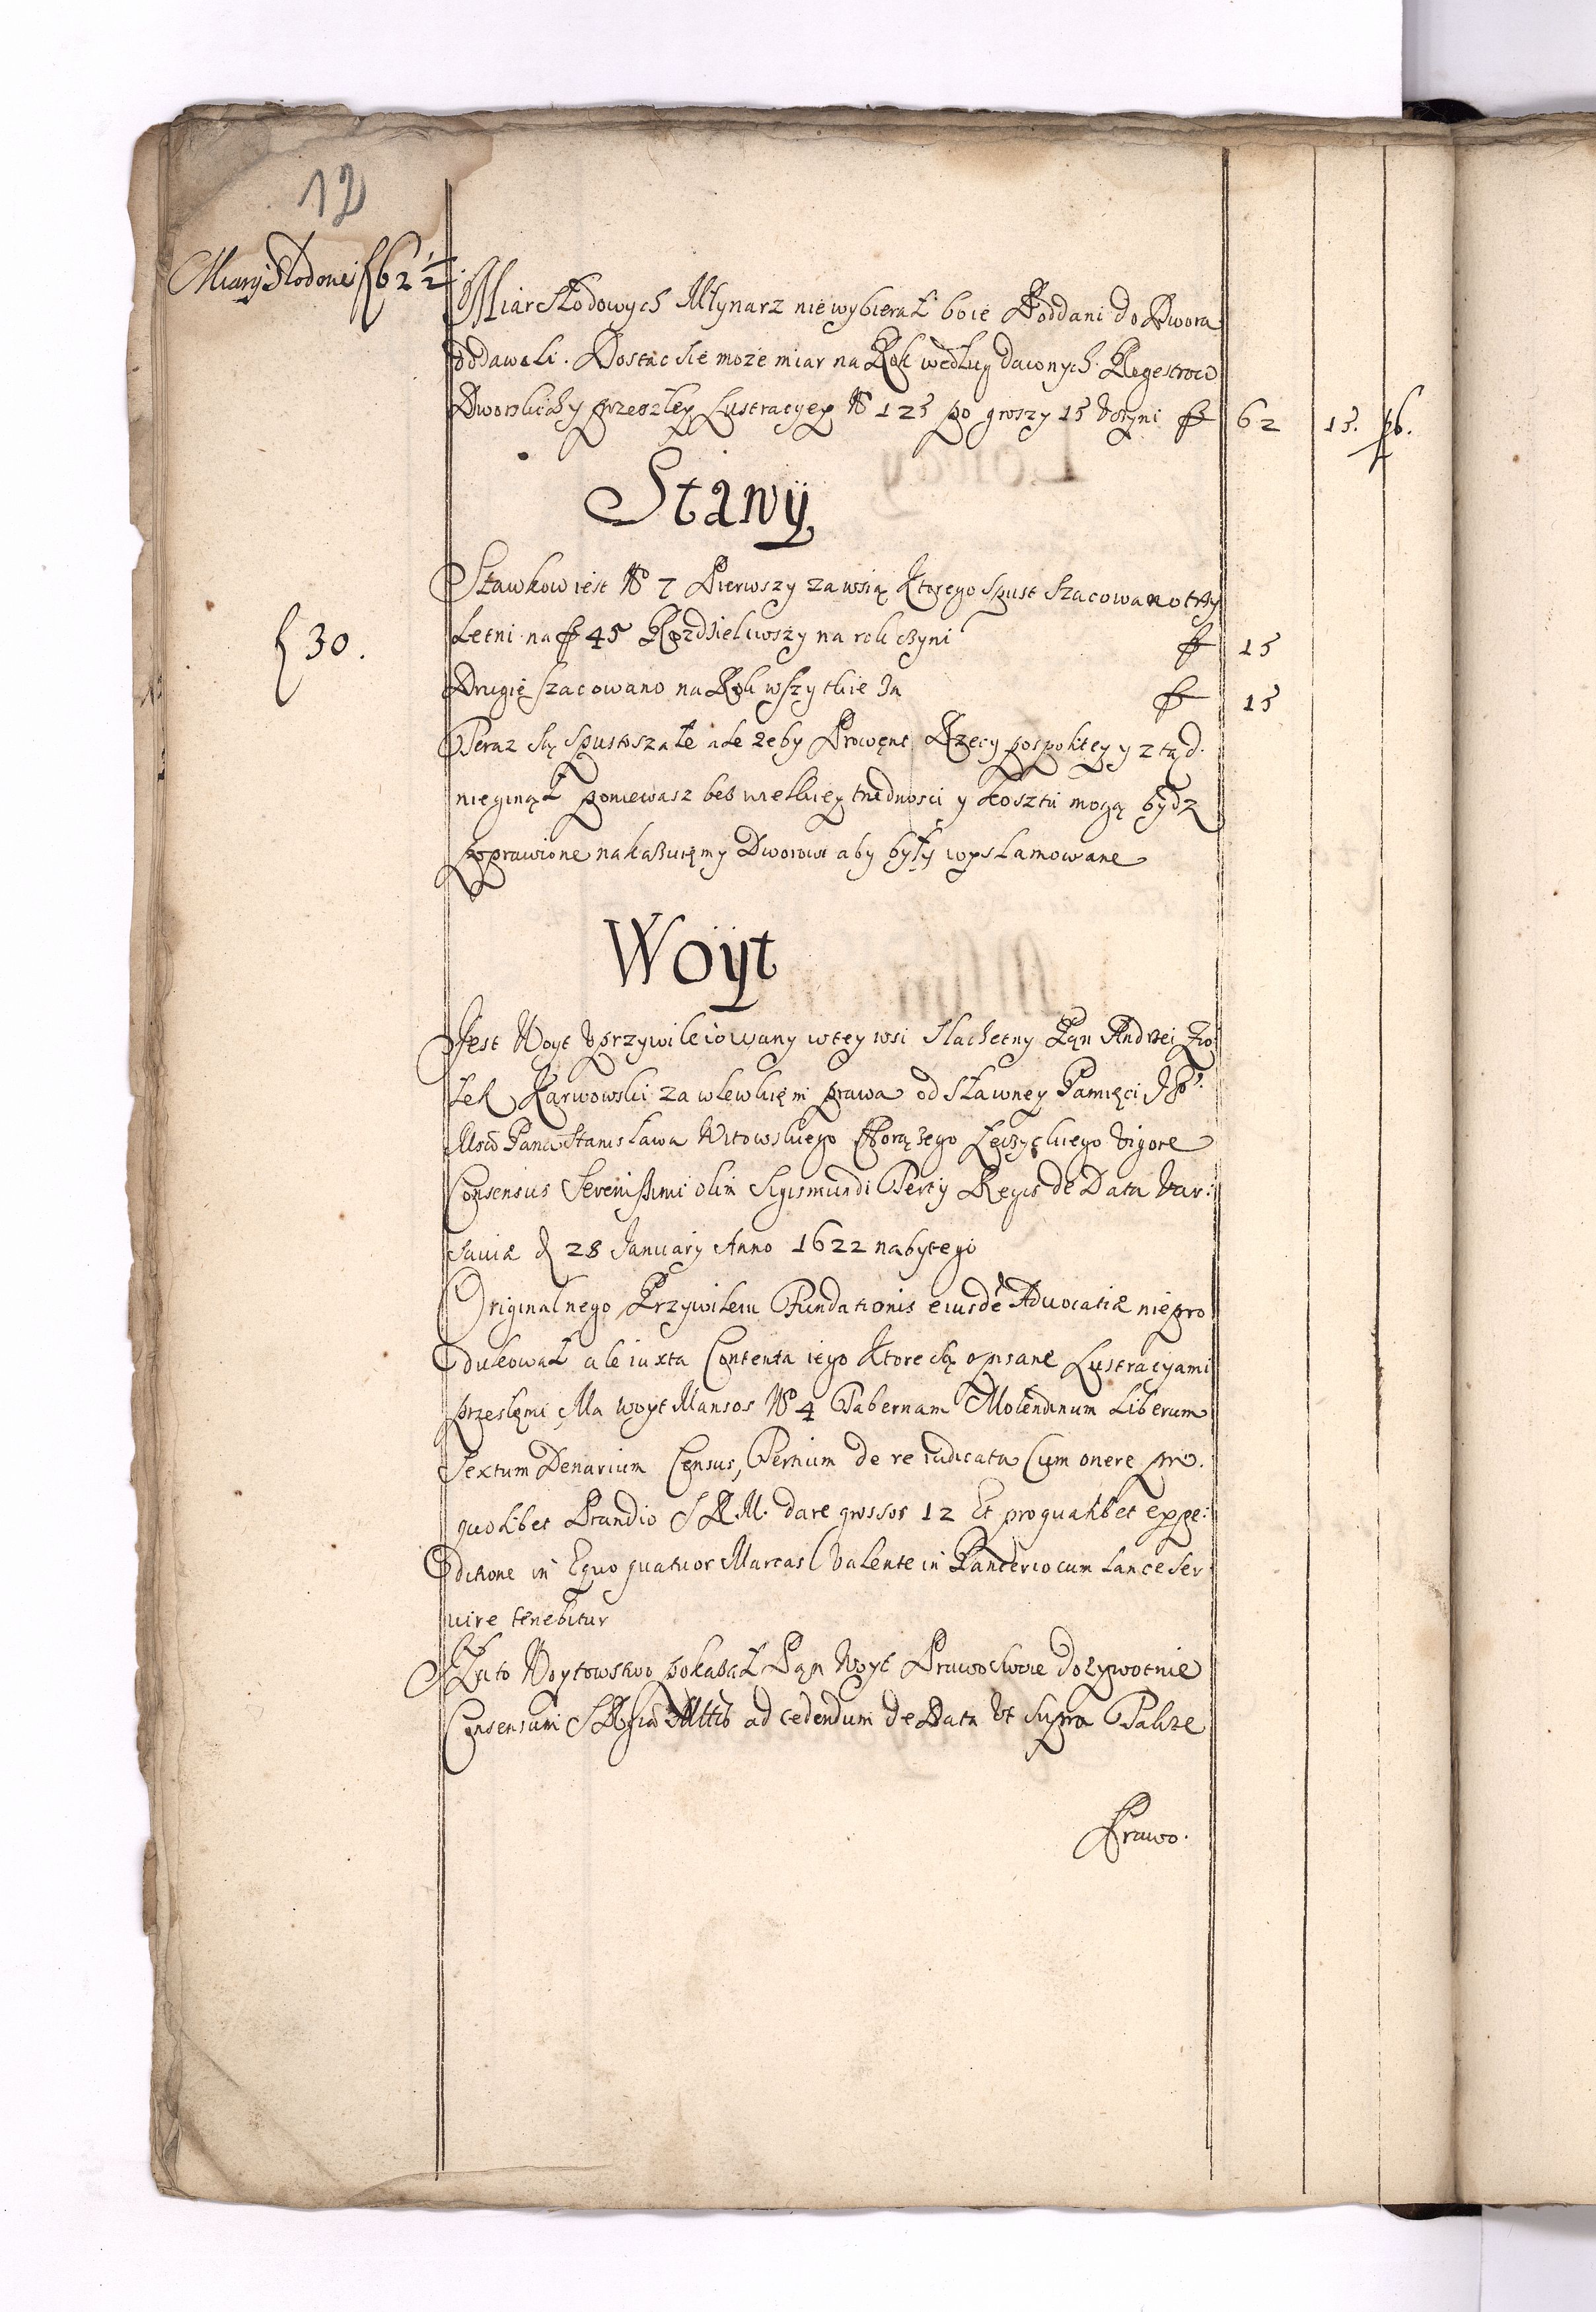 12
Miary Słodowe f 62 1/2
Miar Słodowych Młynarz nie wybierał bo ie Poddani do Dwora
oddawali. Dostać sie może miar na Rok według dawnych Regestrow
Dworskich y przeszłey Lustracyey No 125 po groszy 15 Vczyni f 62 15.
Stawÿ
Stawkow iest No 7 Pierwszy za wsią Ktorego Spust Szacowano trzy
f 30.
Letni na f 45 Rozdzieliwszy na rok czyni f 15
Drugie szacowano na Rok wszytkie In f 15
Teraz są Spustoszałe ale zeby Prowęnt Rzeczy pospolitey y ztąd
nieginął poniewasz bes wielkiey trudnosci y kosztu mogą bydz
poprawione nakazuięmy Dworowi aby były wyszlamowane
Woÿt
Jest Woyt Vprzywileiowany w tey wsi Slachetny Pąn Andrzei
Karwowski za wlewkięm prawa od Sławney Pamięci
Pana Stanisława Witowskiego Chorążego Łęczyckiego Vigore
Consensus Serenissimi olim Sigismundi Tertij Regis de Data Var:
sauiæ d 28 January Anno 1622 nabytego
Originalnego Przywileiu Fundationis eiusdē Aduocatiæ nie pro
dukował ale iuxta Contenta iego Ktore są opisane Lustracyami
przeszłęmi Ma woyt Mansos No 4 Tabernam Molendinum Liberum
Sextum Denarium Census, Tertium de re iudicata Cum onere pro.
quolibet Prandio S R M. dare grossos 12 Et pro qualibet expe:
ditione in Equo quatuor Marcas Valente in Pancerio cum Lance Ser
uire tenebitur
Na to Woytowstwo pokazał Pąn Woyt Prawo swoie dozywotnie
Consensum S R ad cedendum de Data Vt Supra Takze
Prawo.